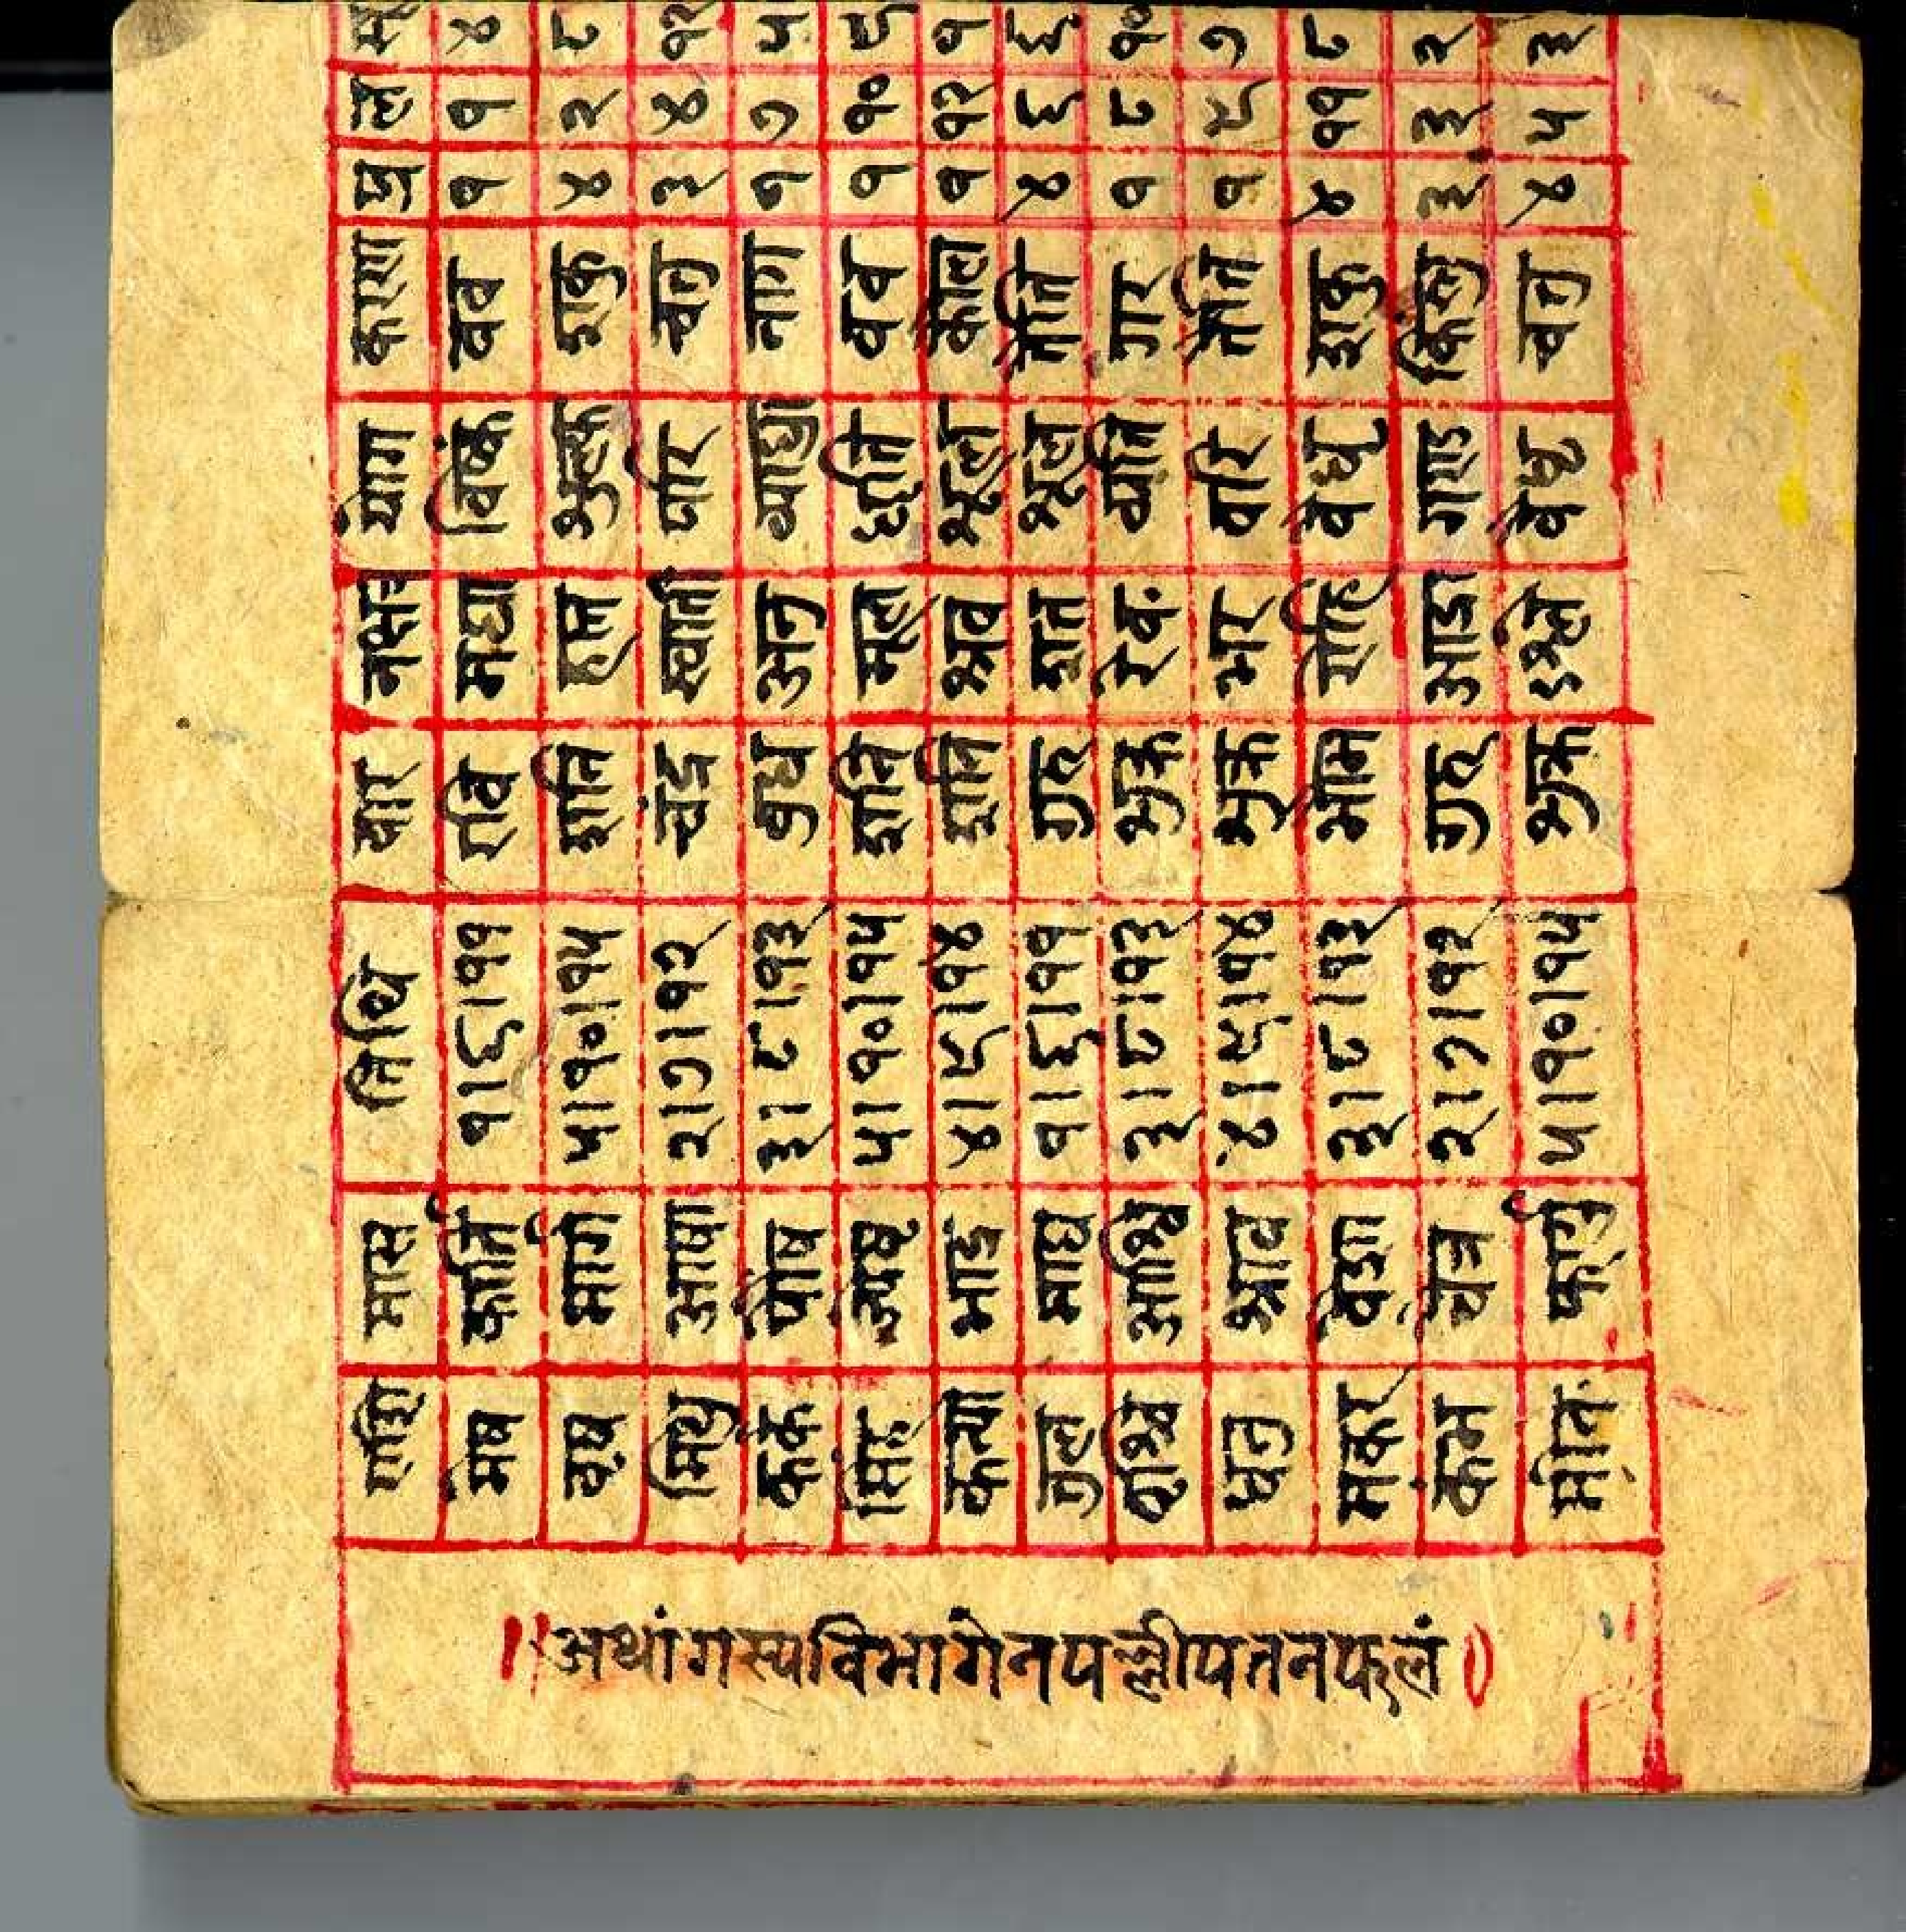 राशि मास तिथि वार नक्षत्र योग करण प्र ल
मेष कार्ति १।६।११ रवि मघा विष्कं वव १ १ ४
वृष मार्ग ५।१०।१५ शनि हस्त शुक्ल शकु ४ २ ८
मिथु आषा २।७।१२ चंद्र स्वाती परि चतु ३ ४ १२
कर्क पौष ३।८।१३ बुध अनु व्याघा नाग १ ७ ५
सिंह ज्येष्ठ ५।१०।१५ शनि मूल धृति वव १ १० ९
कन्या भाद्र ४।९।१४ शनि श्रव शूल कौल १ १२ १
तुल माघ १।६।११ गुरु शत शूल तैति ४ ६ ६
वृश्चि आश्वि ३।८।१३ शुक्र रेव व्यति गर १ ८ १०
धनु श्राव ४।९।१४ शुक्र भर वरि तैति १ ९ ७
मकर वैशा ३।८।१३ भौम रोहि वैधृ शकु ४ ११ ८
कुंभ चैत्र २।७।१२ गुरु आर्द्रा गण्ड किंस्तु ३ ३ २
मीन फाल्गु ५।१०।१५ शुक्र श्ले वैधृ चतु ४ ५ ३
॥अथांगस्यविभागेनपल्लीपतनफलं